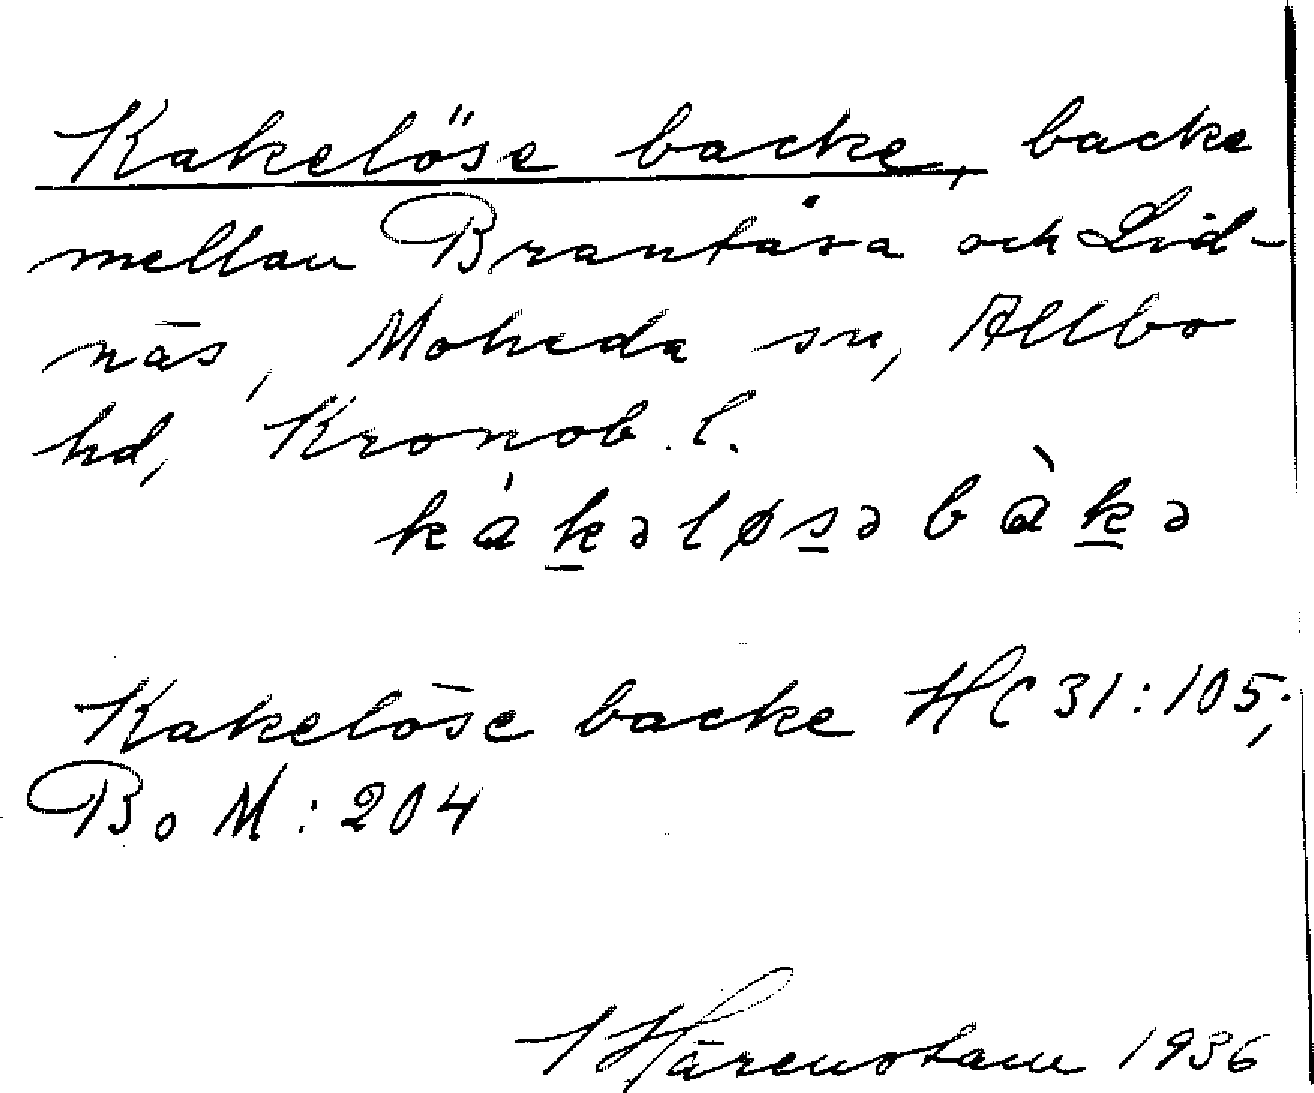 Kakelöse backe, backe
mellan Brantåsa och Lid-
näs, Moheda sn, Allbo
hd, Kronob. l.
kákələsə bàkə
Kakelöse backe HC 31:105;
Bo M:204
Härenstam 1936